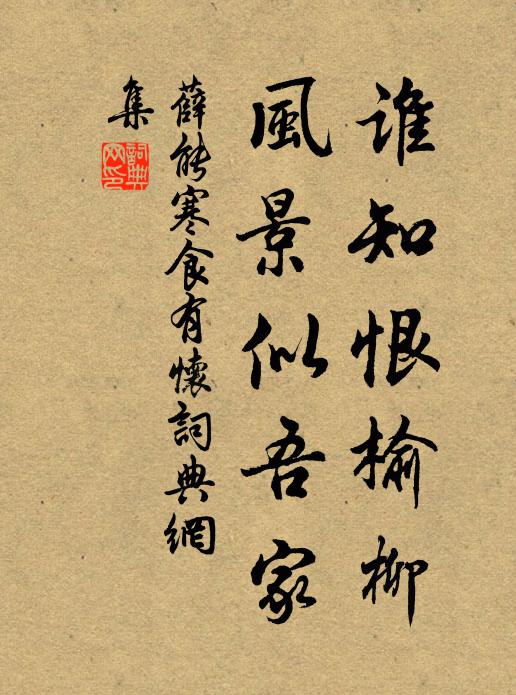 誰知恨榆柳
風景似吾家
薛能寒食有懷詞典網
集
詞典網印